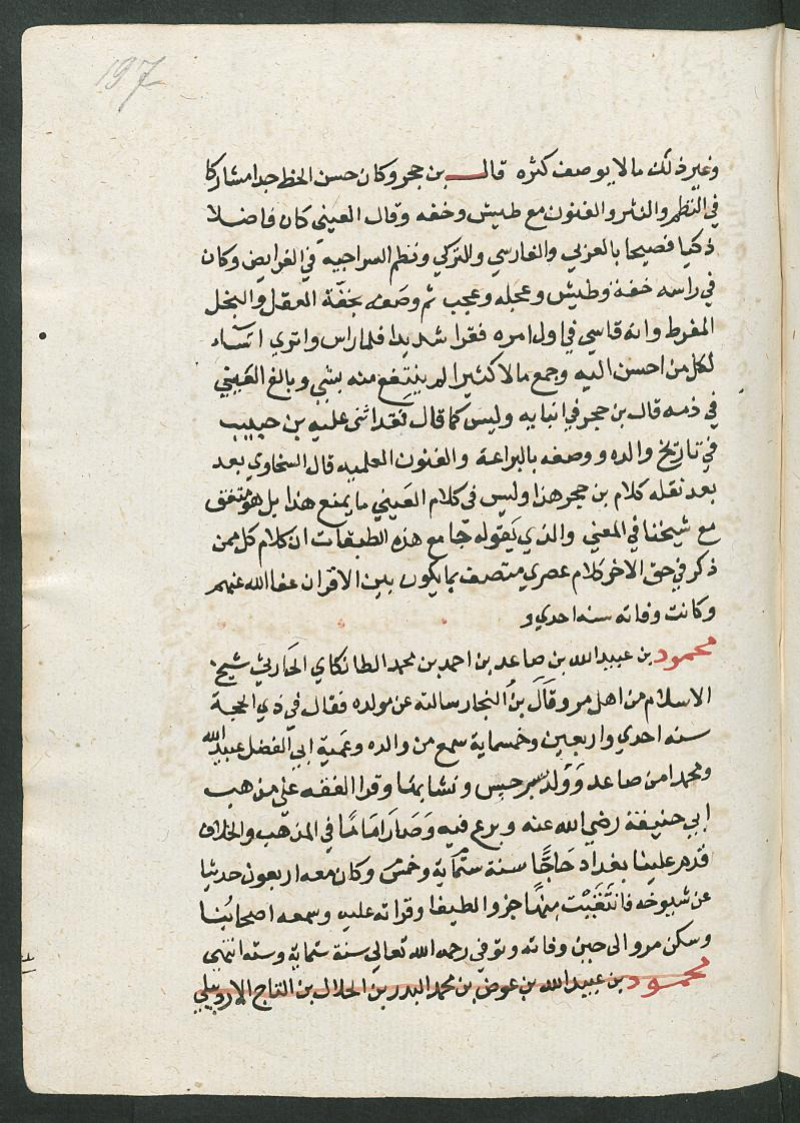 197
وغير ذلك ما لا يوصف كثره قال بن حجر وكان حسن الخط جدا مشاركا
في النظم والنثر والفنون مع طيش وخفه وقال العيني كان فاضلا
ذكيا فصيحا بالعربي والفارسي والتركي ونظم السراجيه في الفرايض وكان
في راسه خفة وطيش وعجله وعجب ثم وصفه بخفة العقل والبخل
المفرط وانه قاسي في اول امره فقرا شديدا فلما راس واثري اساء
لكل من احسن اليه وجمع مالا كثيرا لم ينتفع منه بشي وبالغ العيني
في ذمه قال بن حجر في انبايه وليس كما قال لقد اثنى عليه بن حبيب
في تاريخ والده ووصفه بالبراعة والفنون العلميه قال السخاوي بعد
بعد نقله كلام بن حجر هذا وليس في كلام العيني ما يمنع هذا بل هو متفق
مع شيخنا في المعني والذي يقوله جامع هذه الطبقات ان كلام كل ممن
ذكر في حق الاخر كلام عصري متصف بما يكون بين الاقران عفا الله عنهم
وكانت وفاته سنه احدي و
محمود بن عبيد الله بن صاعد بن احمد بن محمد الطانكاي الحارثي شيخ
الاسلام من اهل مرو قال بن النجار سالته عن مولده فقال في ذي الحجة
سنه احدي واربعين وخمسماية سمع من والده وعمية ابي الفضل عبيد الله
ومحمد امن صاعد وولد بسرخس ونشا بمنا وقرا الفقه على مذهب
ابي حنيفة رضي الله عنه وبرع فيه وصار اماما في المذهب والخلاف
قدم علينا بغداد حاجا سنة ستماية وخمس وكان معه اربعون حديثا
عن شيوخه فانتخبت منها جزوا لطيفا وقراته عليه وسمعه اصحابنا
وسكن مرو الى حين وفاته وتوفي رحمه الله تعالي سنة ستماية وسته انتهى
محمود بن عبيد الله بن عوض بن محمد البدر بن الجلال بن التاج الاردبيلي